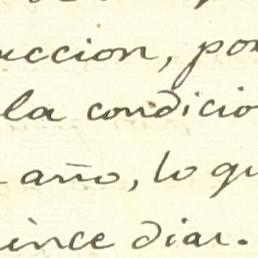 uccion, por
la condicio
año, lo qu
ince dias.